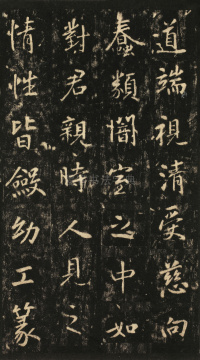 道端視清受慈向
蠢類闇室之中如
對君親時人見之
情性皆斂幼工篆